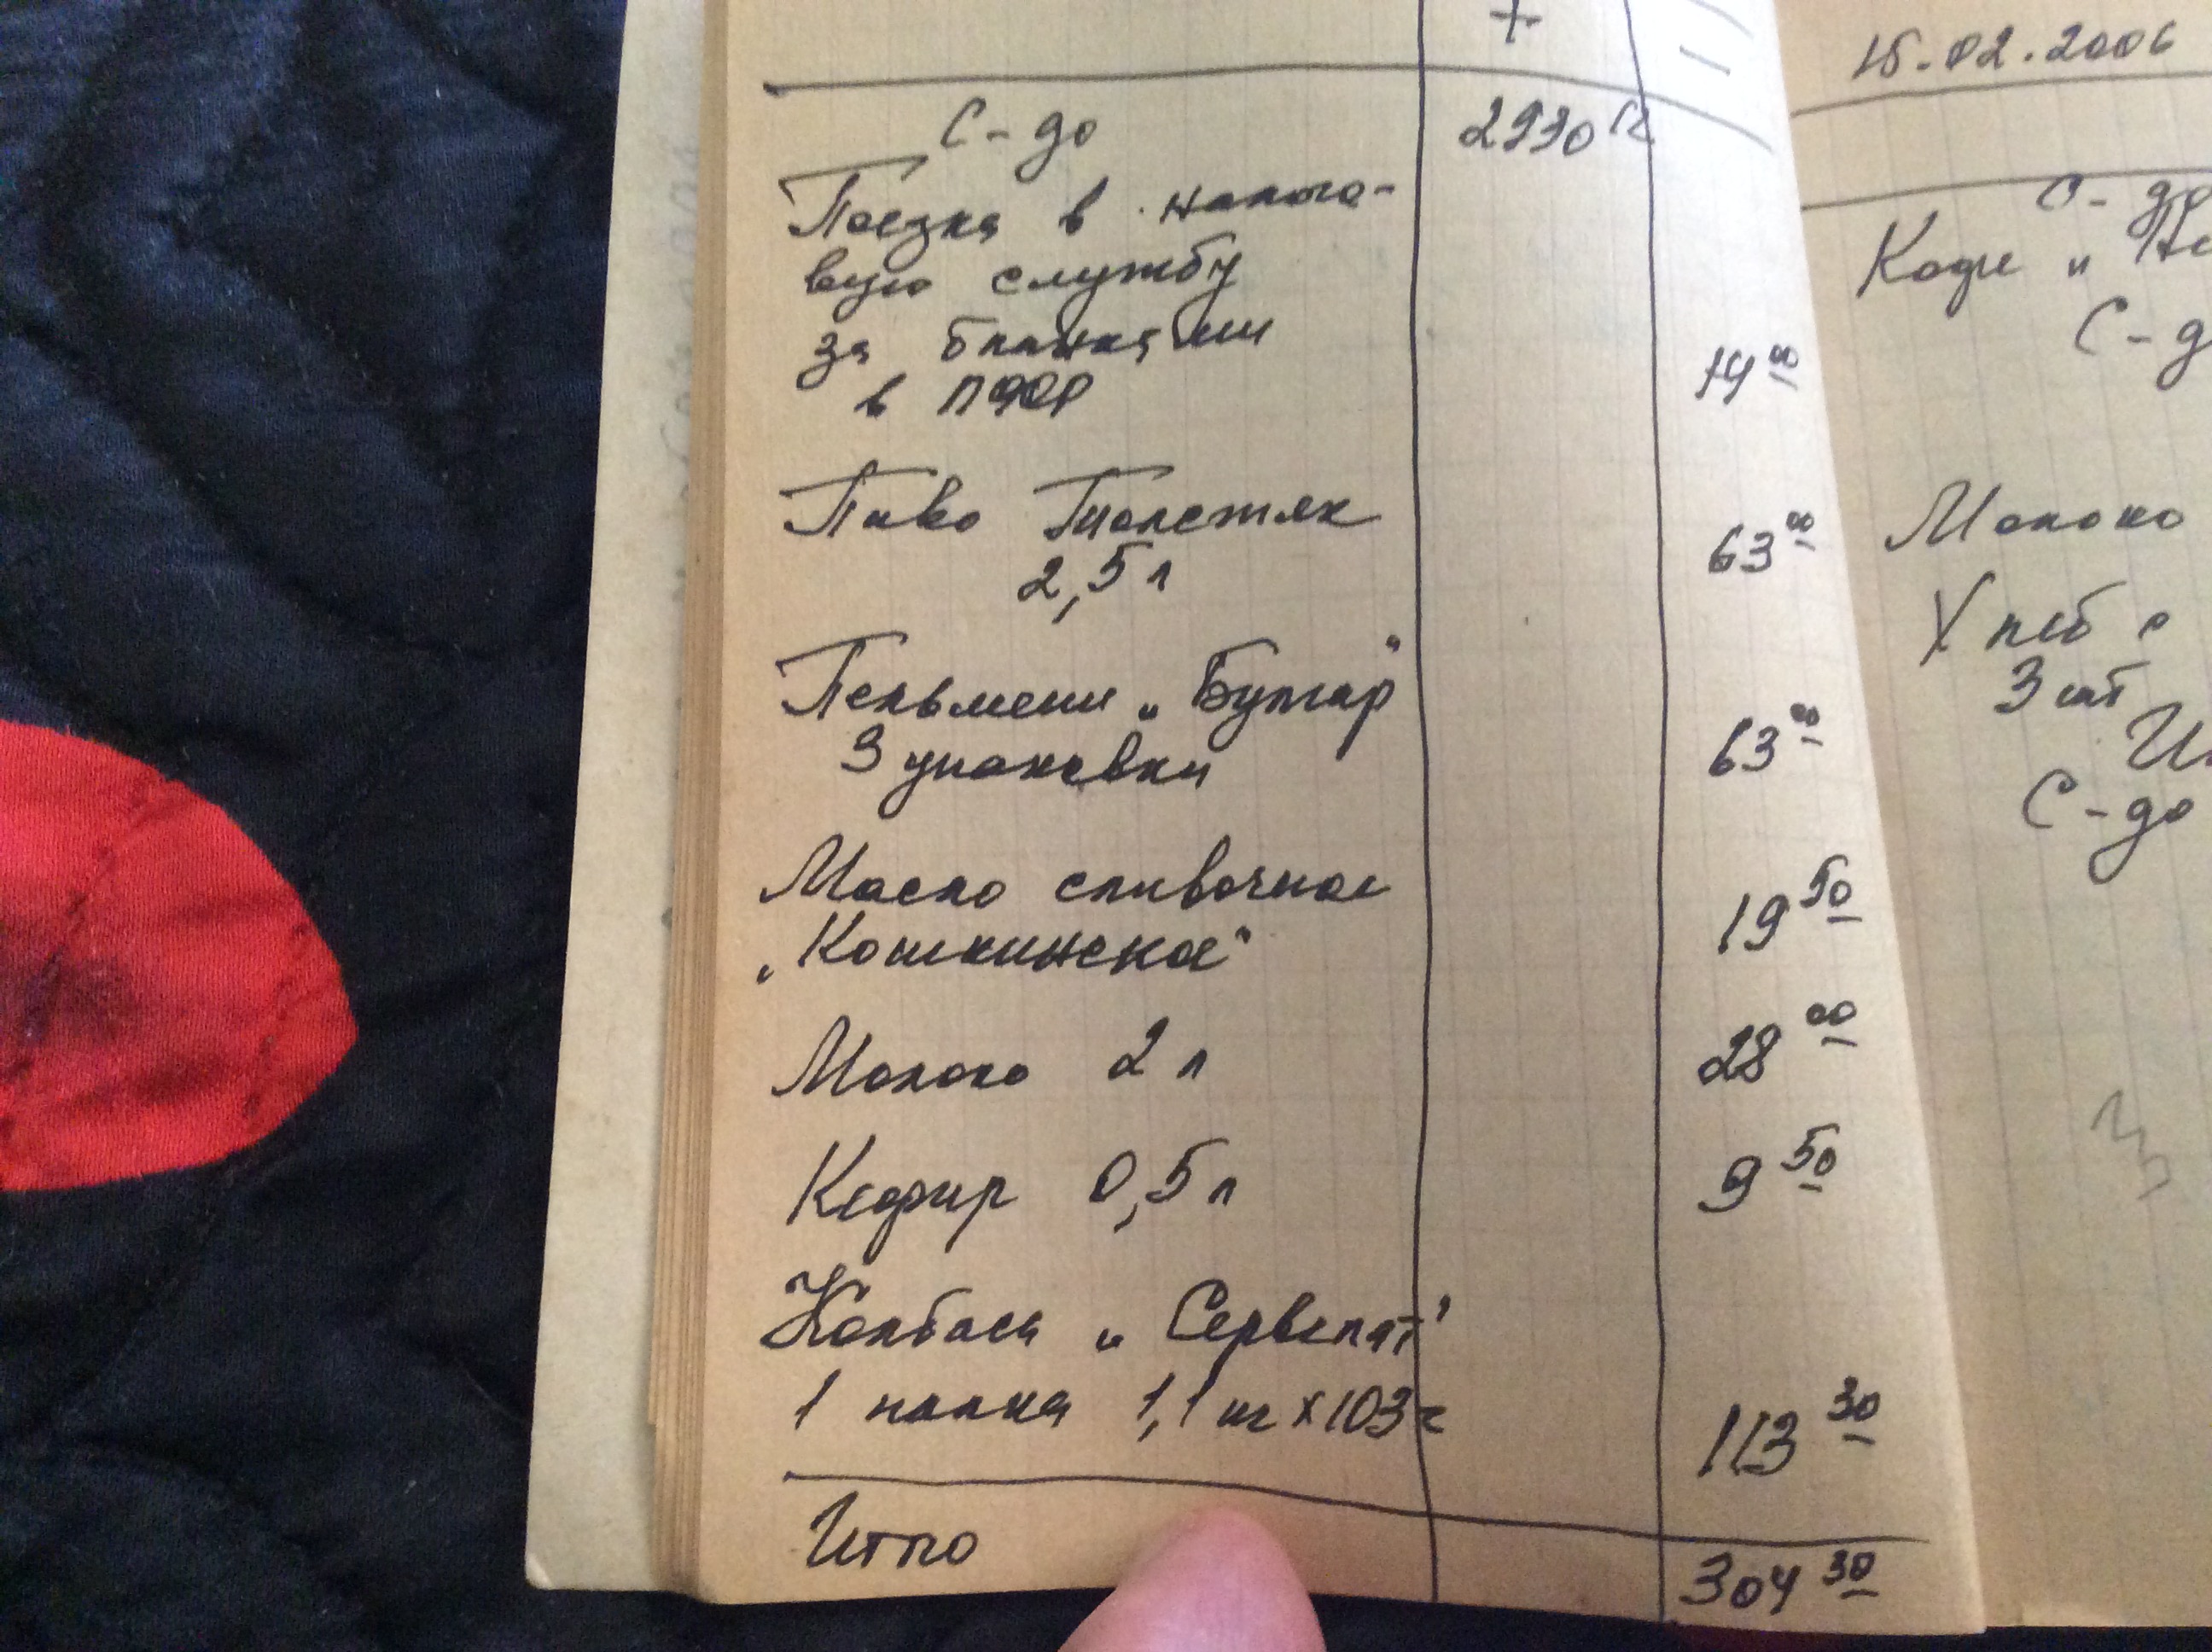 + -
С-до 2930
Поезка в налого-
вую службу
за бланками
в ПФР 14 00
Пиво Толстяк 63 00
2,5 л
Пельмени „Булгар"
3 упаковки 63 00
Масло сливочное 19 50
„Кошкинское"
Молоко 2 л 28 00
Кефир 0,5 л 9 50
Колбаса „Сервелат"
1 палка 1,1 кг х 103 113 30
Итого 304 30
15.02.2006
С-до
Кофе „
С-д
Молоко
Хлеб
3 шт
С-до